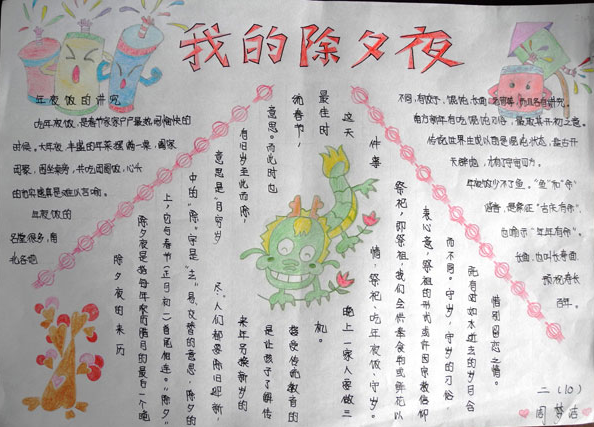 我的除夕夜
年夜饭的讲究
吃年夜饭，是春节家家户户最热闹愉快的
时候。大年夜，丰盛的年菜摆满一桌，阖家
团聚，围坐桌旁，共吃团圆饭，心头
的充实感真是难以言喻。
年夜饭的
名堂很多，南
北各地
不同，有饺子、馄饨、长面、元宵等，而且各有讲究。
南方新年有吃馄饨习俗，是取其开初之意。
传说世界生成以前是混沌状态，盘古开
天辟地，才有了宇宙四方。
年夜饭少不了鱼。"鱼"和"余"
谐音，是象征"吉庆有余"，
也喻示"年年有余"。
长面，也叫长寿面，
预祝寿长
百年。
除夕夜的来历
除夕夜是指每年农历腊月的最后一个晚
上，它与春节（正月初一）首尾相连。"除夕"
中的"除"字是"去；易；交替"的意思，除夕的
意思是"月穷岁
尽"，人们都要除旧迎新，
有旧岁至此而除，
来年另换新岁的
意思。而此时也
是让孩子了解传
统春节，
接受传统教育的
最佳时
机。
这天
晚上一家人要做三
件事
情，祭祀、吃年夜饭、守岁。
祭祀，即祭祖，我们会供奉食物或鲜花以
表心意，祭祖的形式或许因宗教信仰
而不同。守岁，守岁的习俗，
既有对如水逝去的岁月含
惜别留恋之情。
二（10）
周梦洁